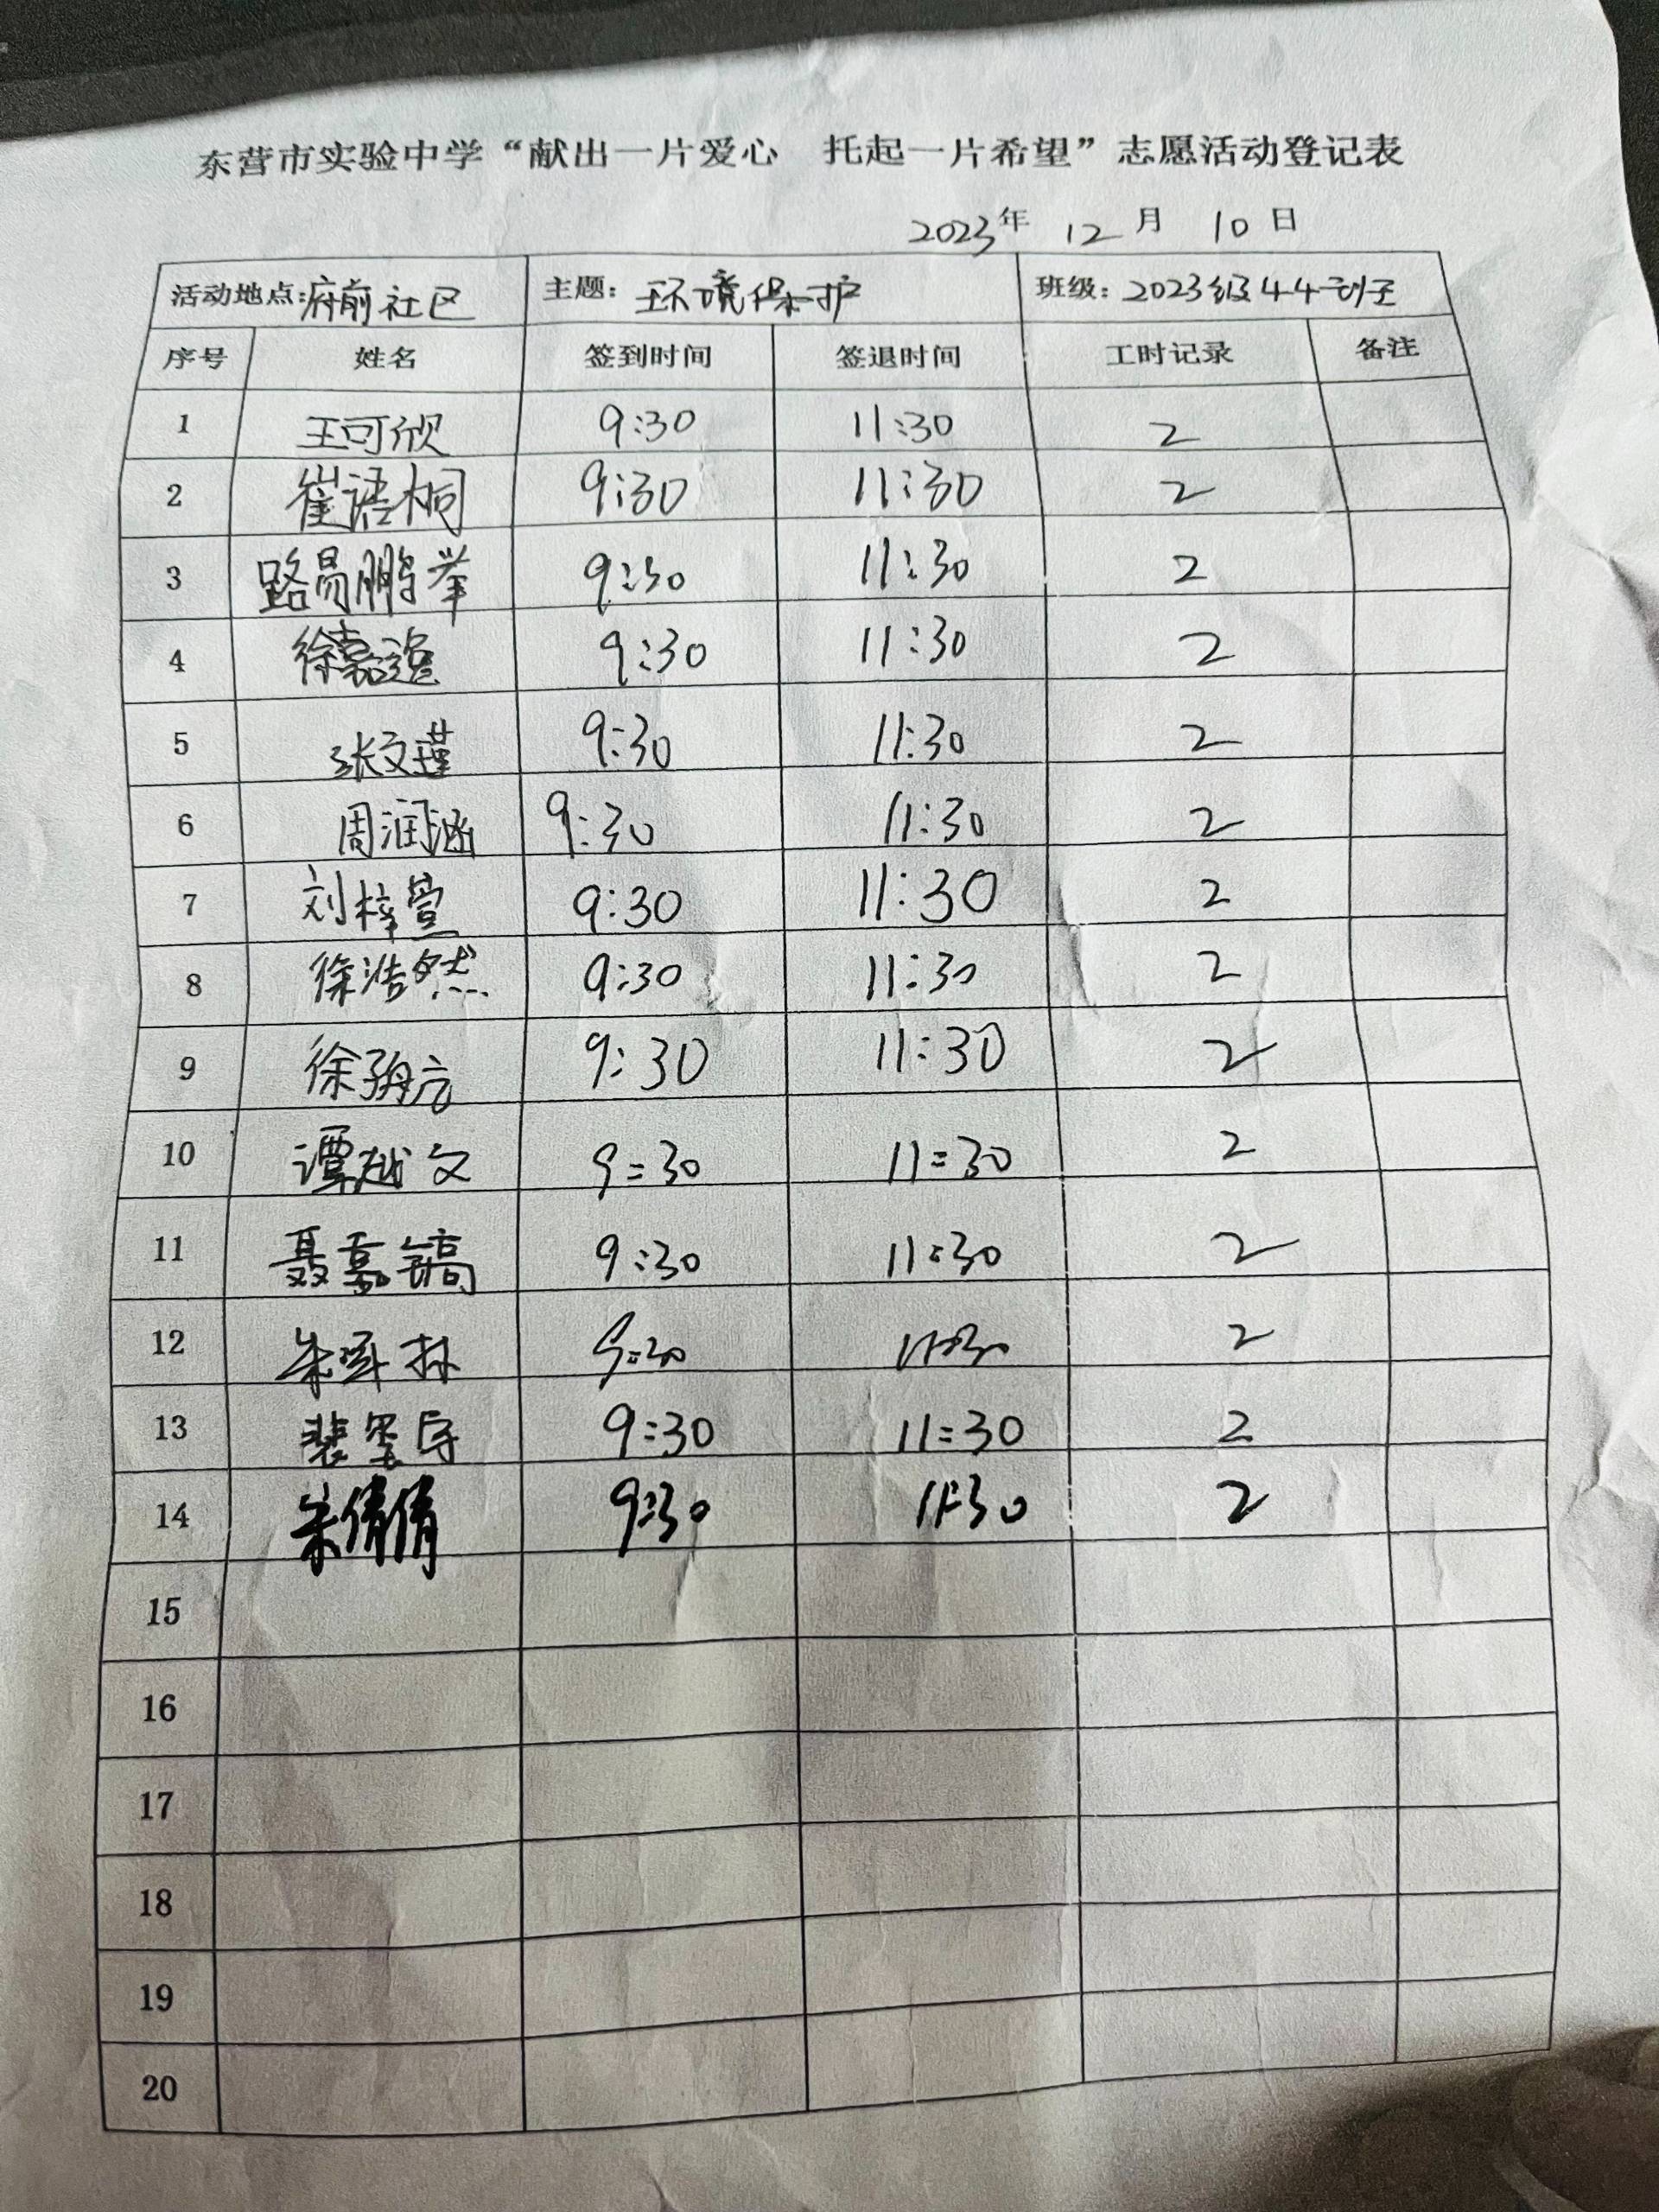 东营市实验中学“献出一片爱心 托起一片希望”志愿活动登记表
2023年 12月 10日
活动地点:府前社区 主题: 环境保护 班级: 2023级44班
序号 姓名 签到时间 签退时间 工时记录 备注
1 王可欣 9:30 11:30 2
2 崔语桐 9:30 11:30 2
3 路易鹏举 9:30 11:30 2
4 徐嘉谊 9:30 11:30 2
5 张文瑾 9:30 11:30 2
6 周润涵 9:30 11:30 2
7 刘梓萱 9:30 11:30 2
8 徐浩然 9:30 11:30 2
9 徐子航 9:30 11:30 2
10 谭越文 9:30 11:30 2
11 聂嘉镐 9:30 11:30 2
12 朱 9:30 11:30 2
13 裴 9:30 11:30 2
14 朱倩倩 9:30 11:30 2
15
16
17
18
19
20